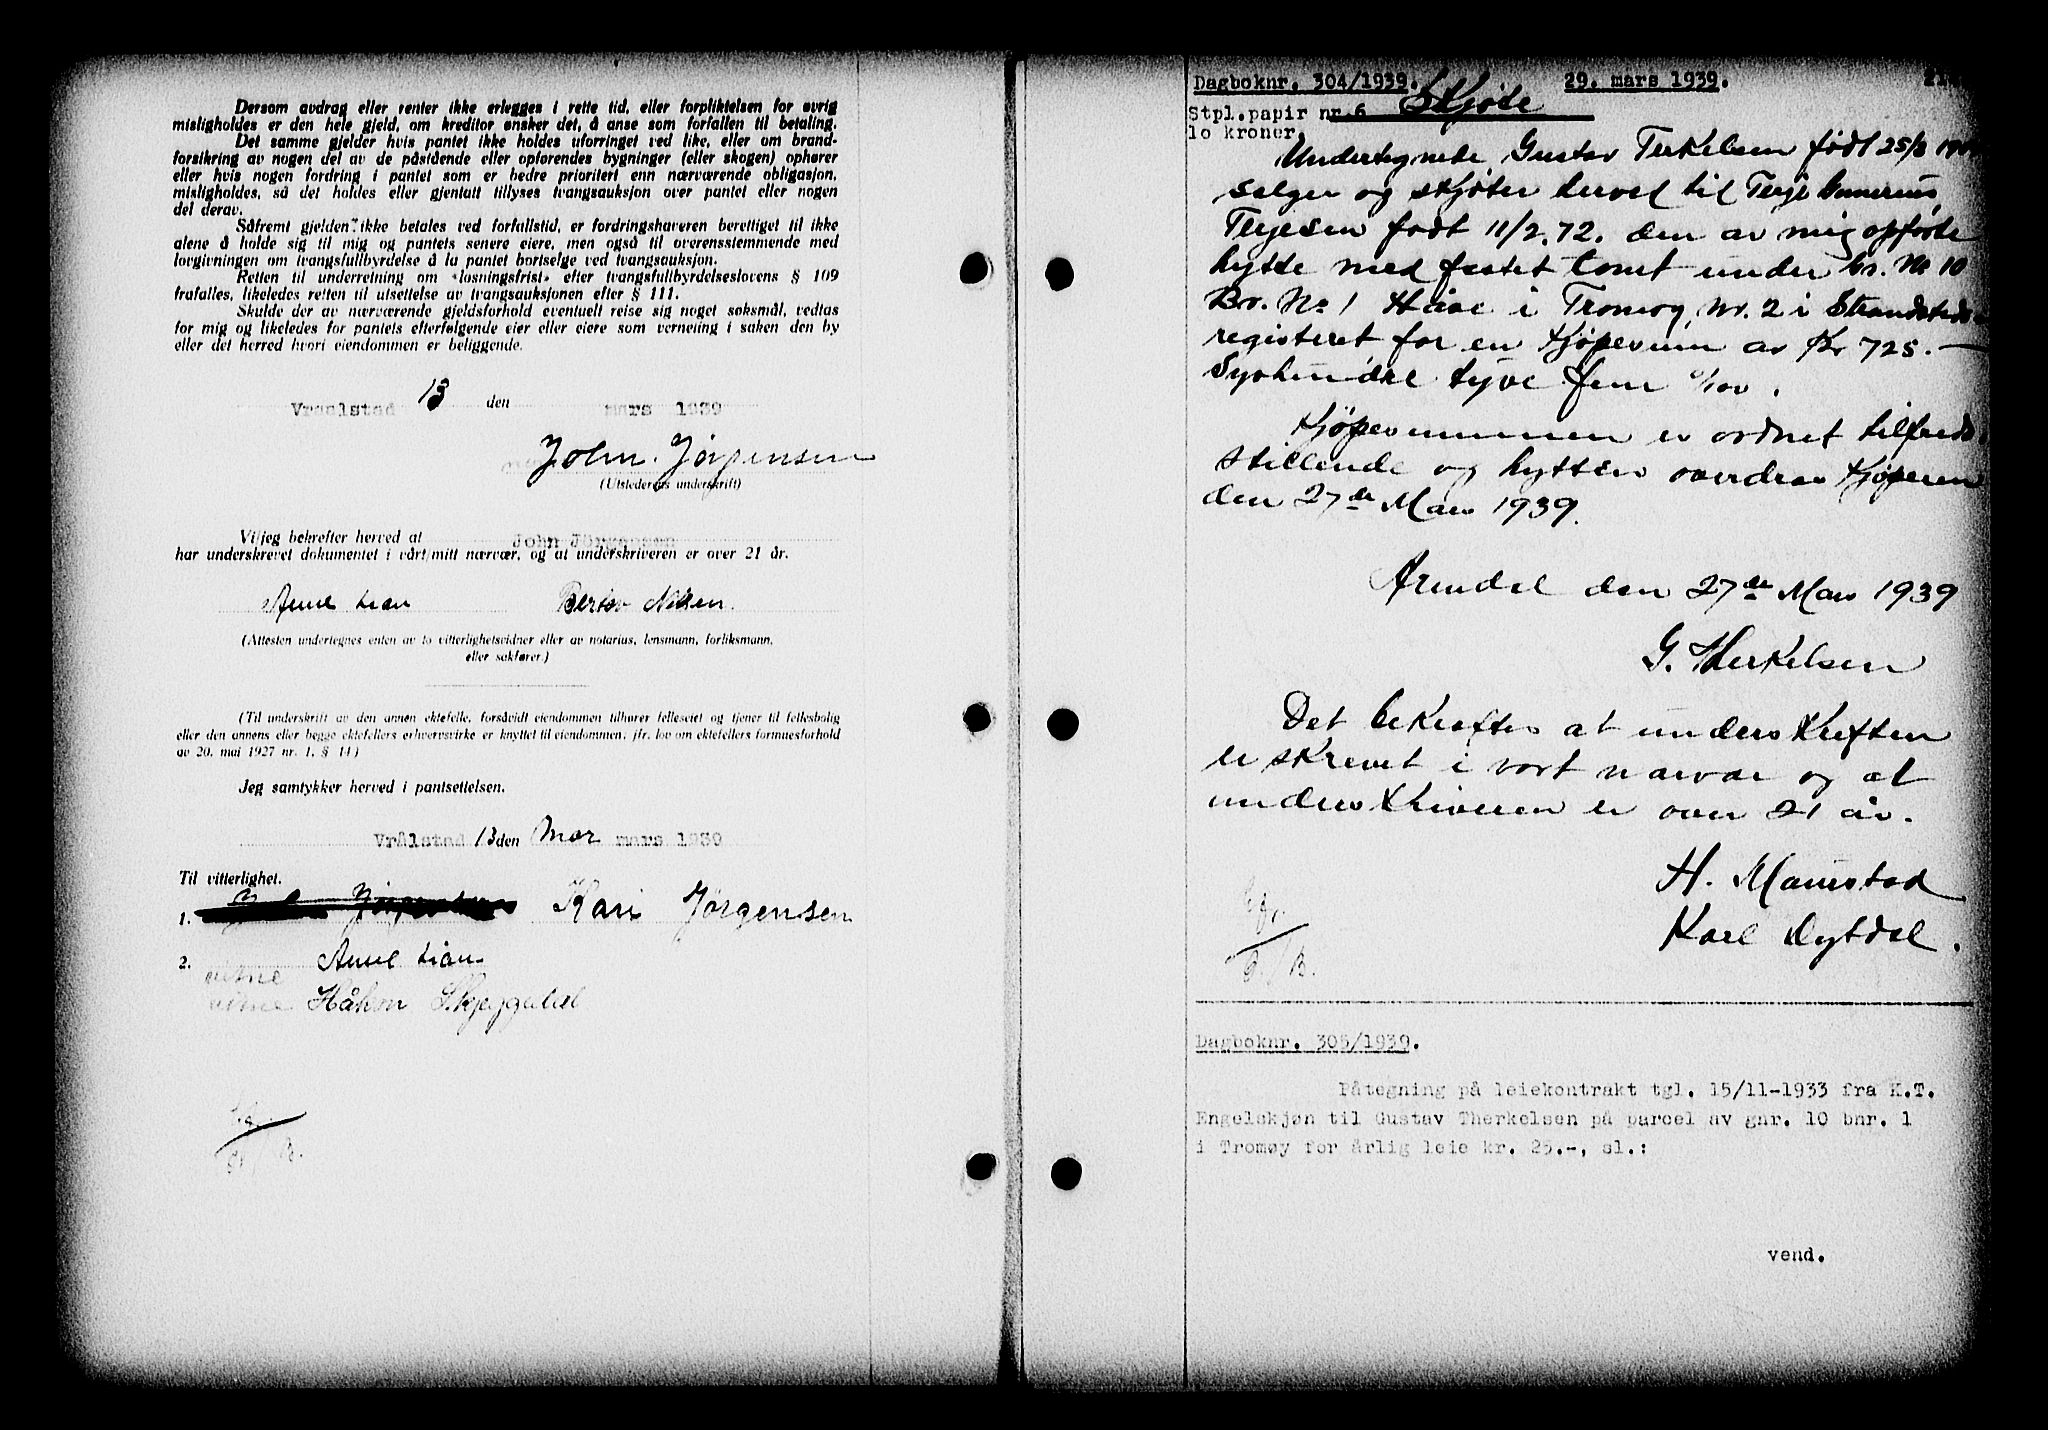 Dersom avdrag eller renter ikke erlegges i rette tid, eller forpliktelsen for øvrig
misligholdes er den hele gjeld, om kreditor ønsker det, å anse som forfallen til betaling.
Det samme gjelder hvis pantet ikke holdes uforringet ved like, eller om brand-
forsikring av nogen del av de påstående eller opførendes bygninger (eller skogen) ophører
eller hvis nogen fordring i pantet som er bedre prioritert enn nærværende obligasjon,
misligholdes, så det holdes eller gjentatt tillyses tvangsauksjon over pantet eller nogen
del derav.
Såfremt gjelden ikke betales ved forfallstid, er fordringshaveren berettiget til ikke
alene å holde sig til mig og pantets senere eiere, men også til overensstemmende med
lovgivningen om tvangsfullbyrdelse å la pantet bortselge ved tvangsauksjon.
Retten til underretning om «løsningsfrist» efter tvangsfullbyrdelseslovens § 109
frafalles, likeledes retten til utsettelse av tvangsauksjonen efter § 111.
Skulde der av nærværende gjeldsforhold eventuelt reise sig noget søksmål, vedtas
for mig og likeledes for pantets efterfølgende eier eller eiere som verneting i saken den by
eller det herred hvori eiendommen er beliggende.
Vraalstad 13 den mars 1939
John. Jørgensen
(Utstederens underskrift)
Vi/jeg bekrefter herved at John Jörgensen
har underskrevet dokumentet i vårt/mitt nærvær, og at underskriveren er over 21 år.
(Attesten undertegnes enten av to vitterlighetsvidner eller av notarius, lensmann, forliksmann,
eller sakfører.)
(Til underskrift av den annen ektefelle, forsåvidt eiendommen tilhører felleseiet og tjener til fellesbolig
eller den annens eller begge ektefellers erhvervsvirke er knyttet til eiendommen, jfr. lov om ektefellers formuesforhold
av 20. mai 1927 nr. 1, § 14)
Jeg samtykker herved i pantsettelsen.
Vrålstad 13 den Mar mars 1939
Til vitterlighet.
1. Kari Jørgensen
2.
vitne
vitne Håkon
Dagboknr. 304/1939. Skjøte 29. mars 1939.
Stpl.papir nr.6
10 kroner.
Undertegnede Gustav Terkelsen født 25/8
selger og skjøter herved til Terje Gunerius
Terjesen født 11/2.72. den av mig opførte
hytte med festet tomt under Gr. No 10
Br. No 1 Håve i Tromøy, Nr. 2 i Strandsteds-
registeret for en Kjøpesum av Kr 725.—
Syvhundre tyve fem 0/100.
Kjøpesummen er ordnet tilfreds-
stillende og hytten overdras Kjøperen
den 27de Mars 1939.
Arendal den 27de Mars 1939
G. Therkelsen
Det bekreftes at underskriften
er skrevet i vort nærvær og at
underskriveren er over 21 år.
Dagboknr. 305/1939.
Påtegning på leiekontrakt tgl. 15/11-1933 fra K.T.
Engelskjøn til Gustav Therkelsen på parcel av gnr. 10 bnr. 1
i Tromøy for årlig leie kr. 25.-, sl.:
vend.